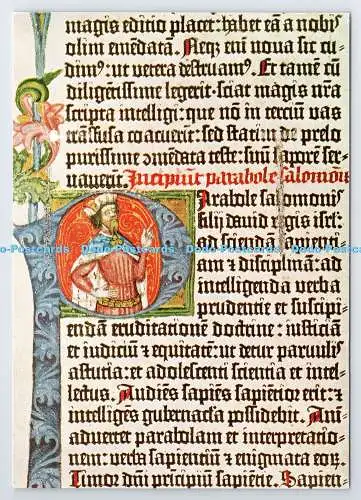 magis editio placet: habet eā a nobis
olim emēdatā. Neqz eni noua sic cu-
dim⁹: ut vetera destruam⁹. Et tamē cū
diligētissime legerit · sciat magis nr̄a
scripta intelligi: que nō in terciū vas
trāsfusa coacuerīt: sed statim de prelo
purissime ꝯmēdata teste: suū saporē ser-
uauerīt. Incipiūt parabole salomōis
Parabole salomonis
filij dauid regis isrl̄:
ad sciendā sapienti-
am ⁊ disciplinā: ad
intelligenda verba
prudentie et suscipi-
endā eruditationē doctrine: iusticiā
et iudiciū ⁊ equitatē: ut detur paruulis
astutia: et adolescenti scientia et intel-
lectus. Audiēs sapiēs sapiētior erit: ⁊
intelligēs gubernacla possidebit. Ani-
aduertet parabolam et interpretatio-
nem: verba sapientiū ⁊ enigmata eoꝝ.
Timor dn̄i prīcipiū sapiētie. Sapien-
Dodo-Postcards Dodo-Postcards Dodo-Postcards